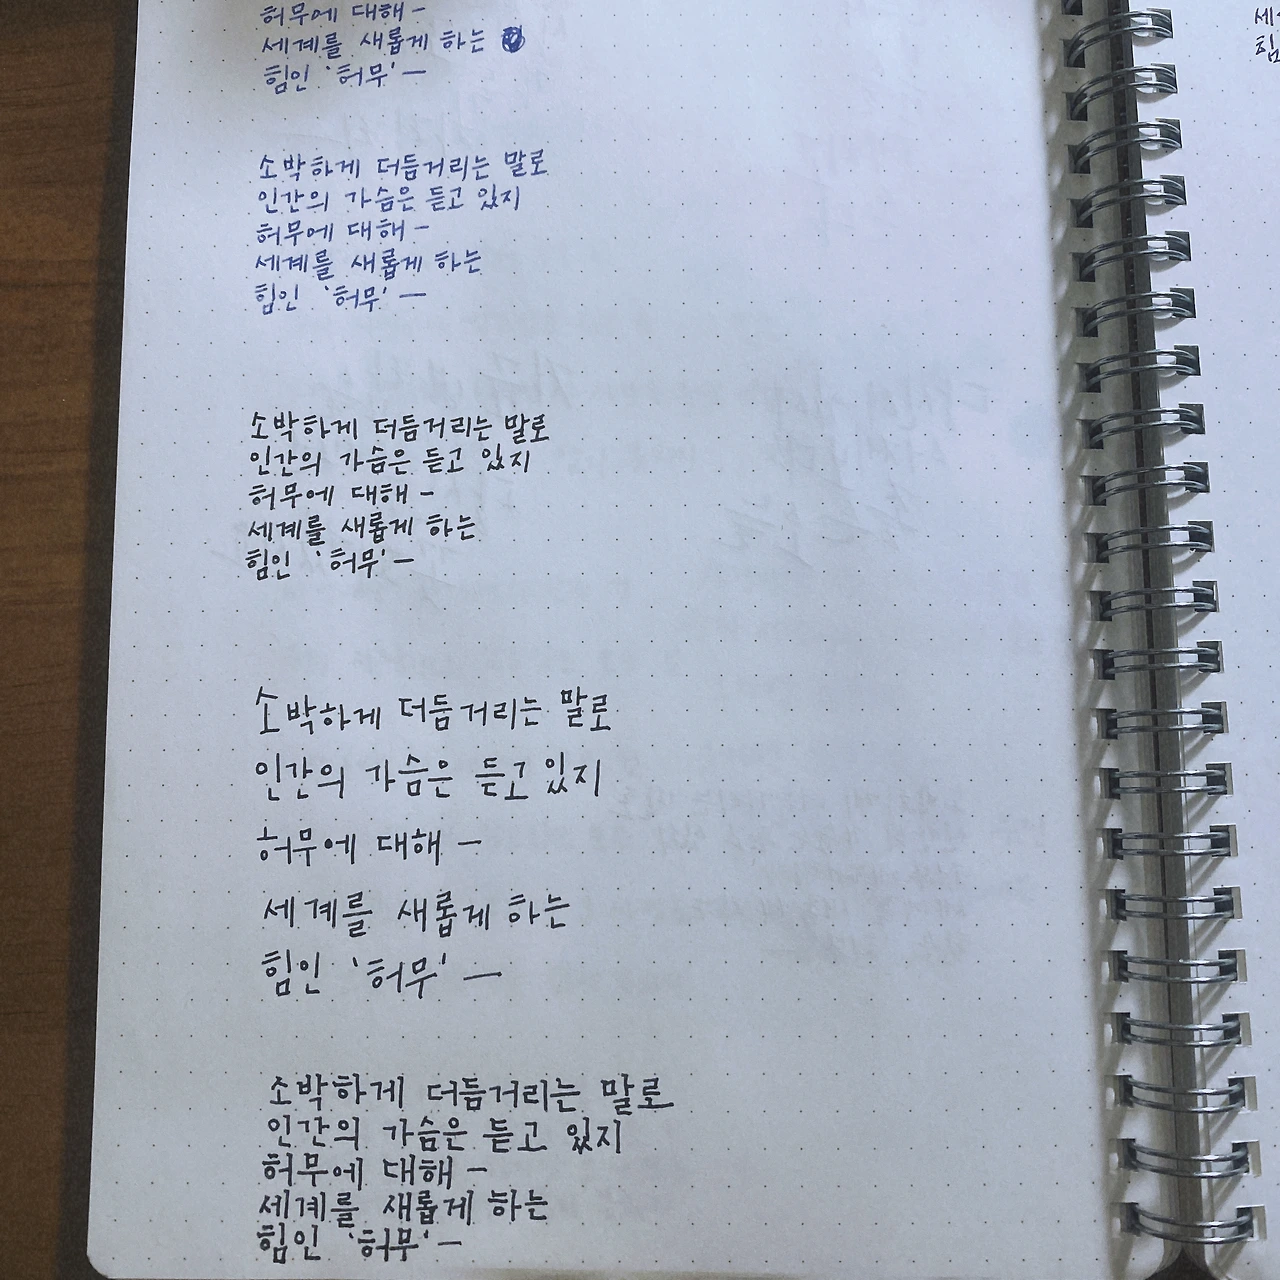 허무에 대해 -
세계를 새롭게 하는
힘인 '허무' —
소박하게 더듬거리는 말로
인간의 가슴은 듣고 있지
허무에 대해 -
세계를 새롭게 하는
힘인 '허무' —
소박하게 더듬거리는 말로
인간의 가슴은 듣고 있지
허무에 대해 -
세계를 새롭게 하는
힘인 '허무' —
소박하게 더듬거리는 말로
인간의 가슴은 듣고 있지
허무에 대해 —
세계를 새롭게 하는
힘인 '허무' —
소박하게 더듬거리는 말로
인간의 가슴은 듣고 있지
허무에 대해 -
세계를 새롭게 하는
힘인 '허무' —